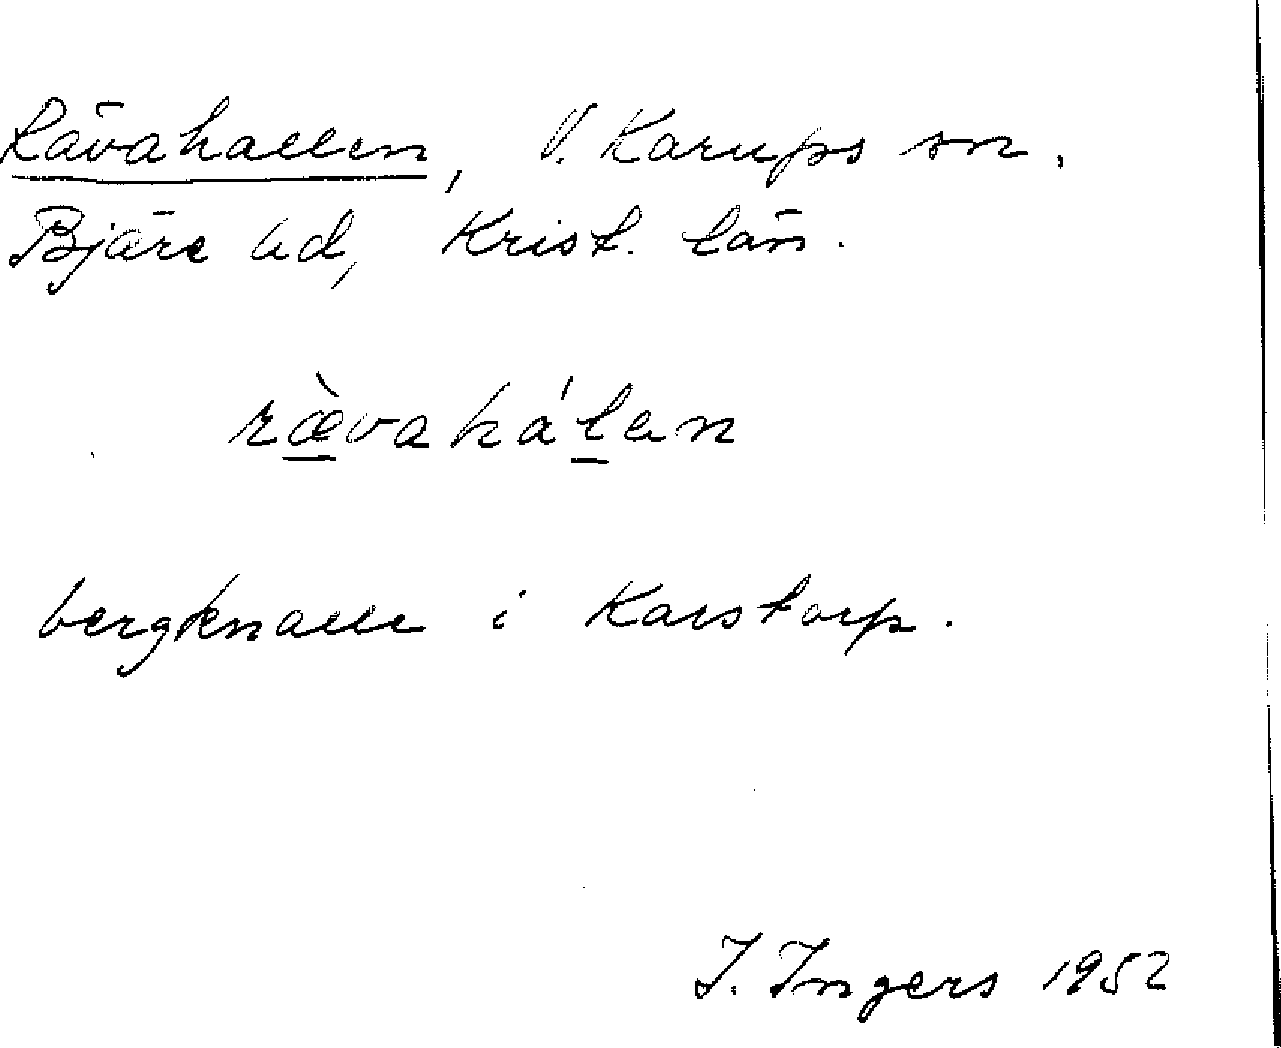 Rävahallen, V. Karups sn.
Bjäre hd, Krist. län.
ræ̀vahálen
bergknalle i Karstorp.
I. Ingers 1952